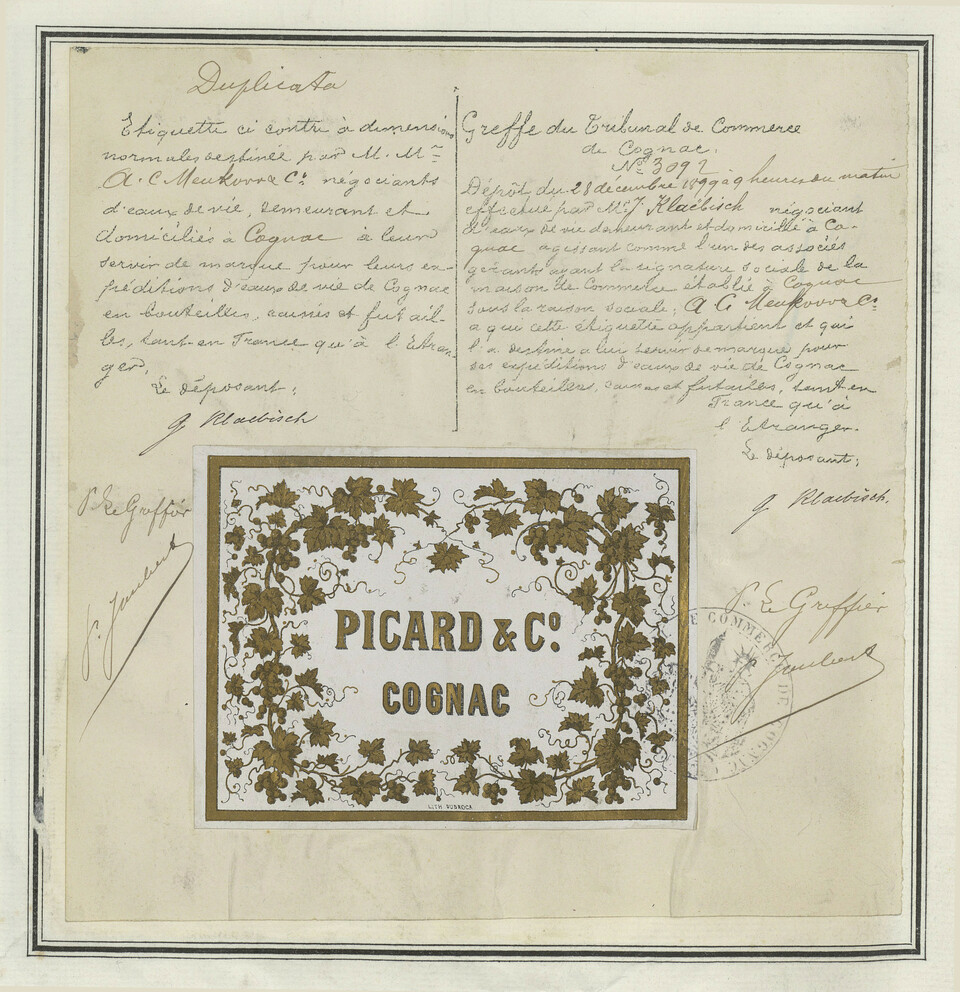 Duplicata
Etiquette ci contre à dimensions
normales destinée par M. Mrs
A. C Meukovv & Co négociants
d'eaux de vie, demeurant et
domiciliés à Cognac à leur
servir de marque pour leurs ex-
péditions d'eaux de vie de Cognac
en bouteilles, caisses et futail-
les, tant en France qu'à l'Etran-
ger.
Le déposant:
J Klaebisch
P. Le Greffier
Greffe du Tribunal de Commerce
de Cognac.
No 3092
Dépôt du 28 décembre 1899 à 9 heures du matin
effectué par Mr J. Klaebisch négociant
d'eaux de vie demeurant et domicilié à Co-
gnac agissant comme l'un des associés
gérants ayant la signature sociale de la
maison de Commerce établie à Cognac
sous la raison sociale; A C Meukovv & Co
a qui cette étiquette appartient et qui
l'a destine a lui servir de marque pour
ses expéditions d'eaux de vie de Cognac
en bouteilles, caisses et futailles, tant en
France qu'à
l'Etranger.
Le déposant;
J Klaebisch.
P. Le Greffier
Jaubert
PICARD & Co.
COGNAC
DE COMMERCE DE COGNAC